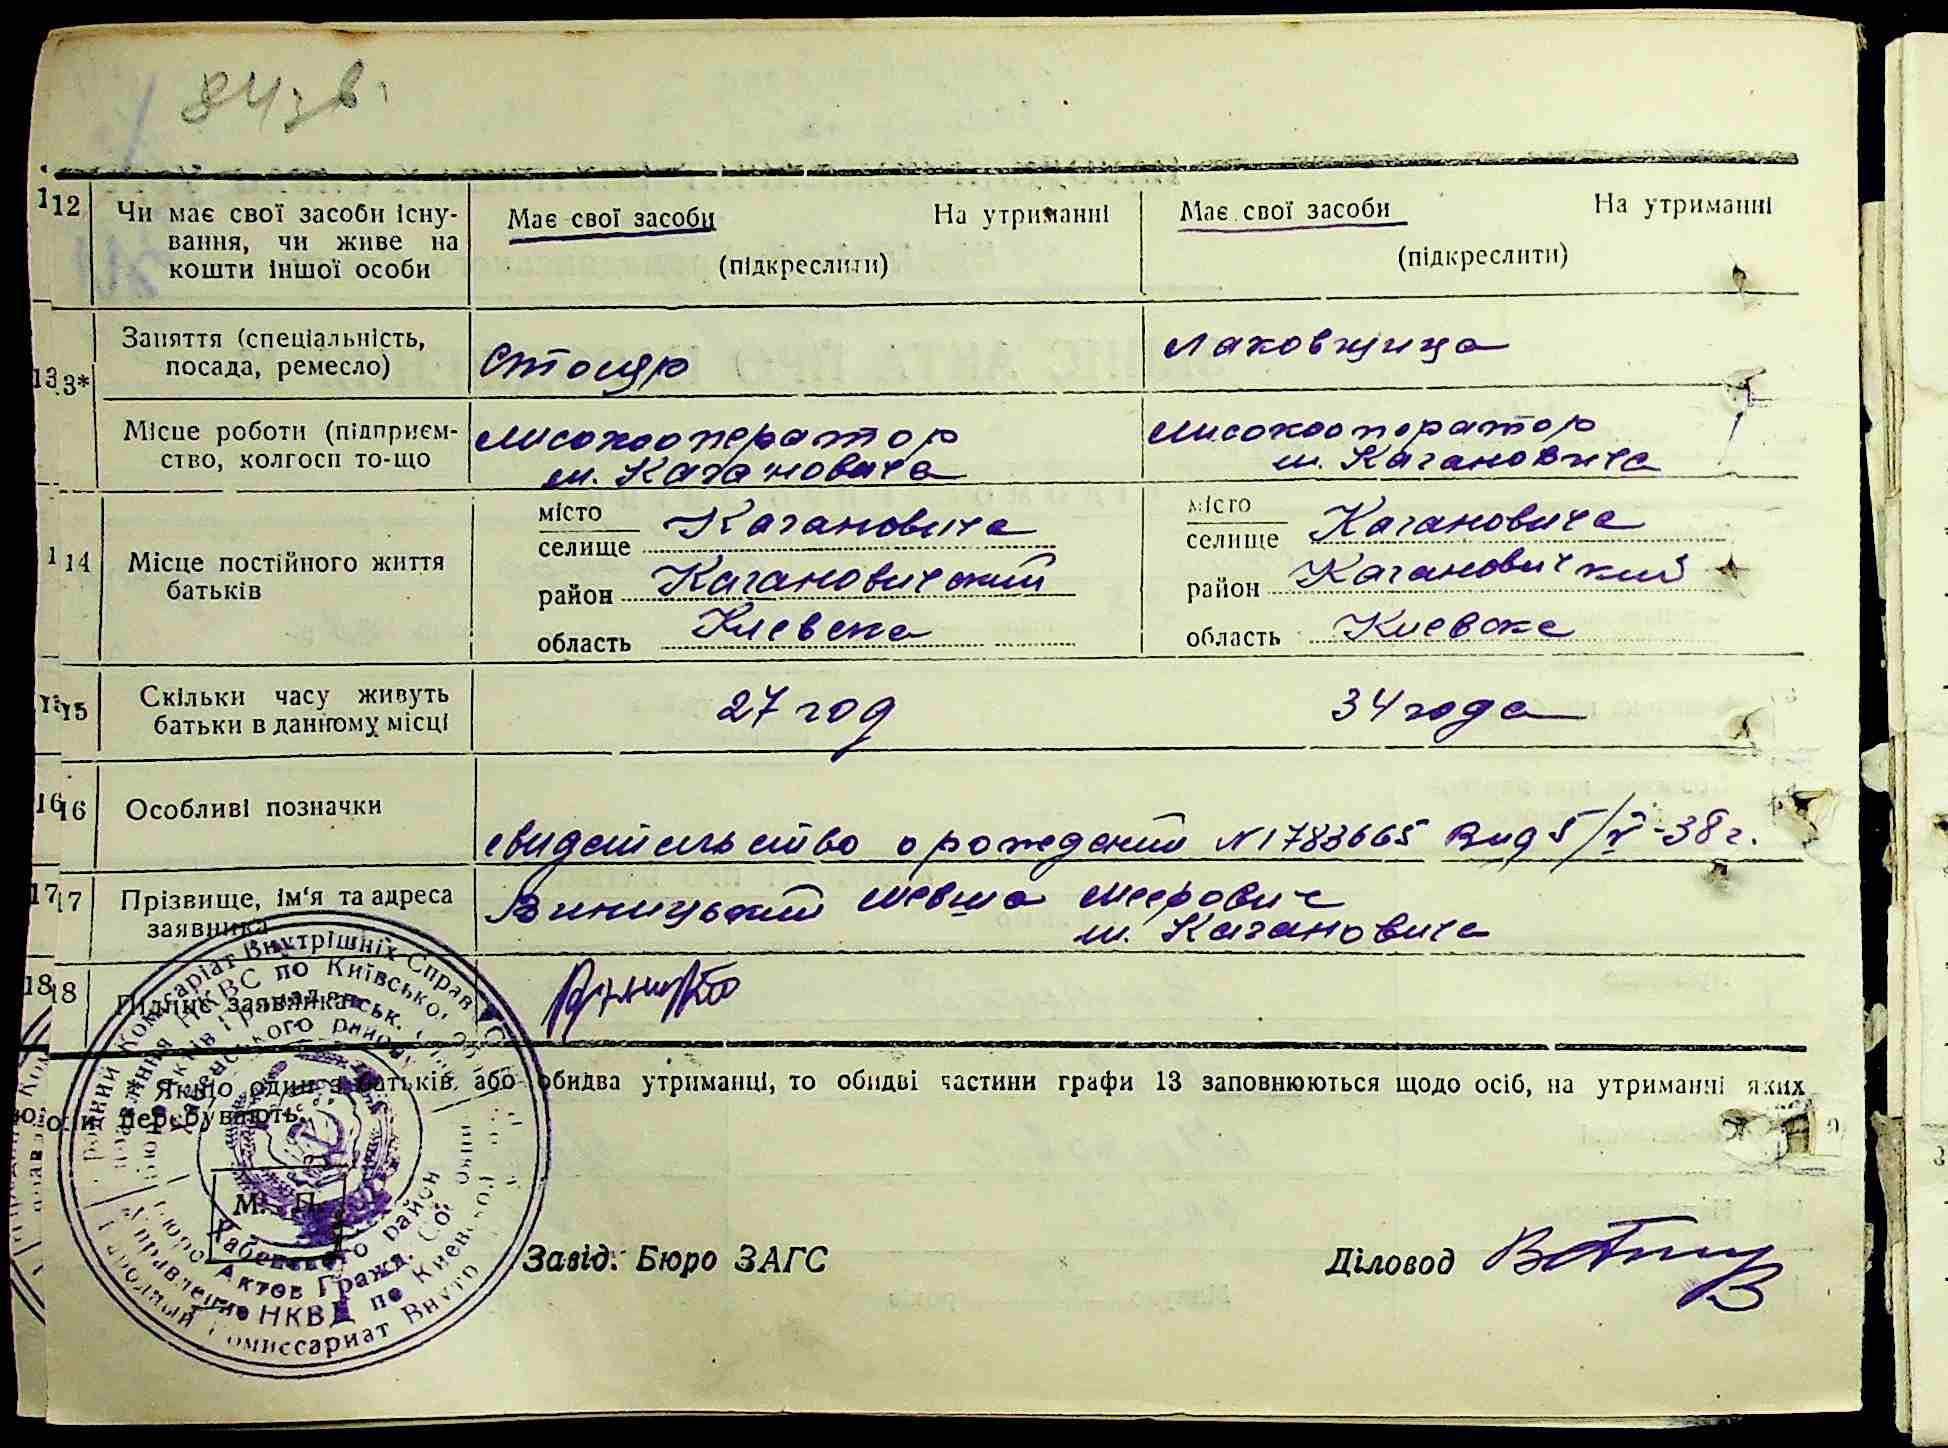 84 зв.
12 Чи має свої засоби існу-
вання, чи живе на
кошти іншої особи
Має свої засоби На утриманні
(підкреслити)
Має свої засоби На утриманні
(підкреслити)
13* Заняття (спеціальність,
посада, ремесло)
Столяр
Лаховщица
Місце роботи (підприєм-
ство, колгосп то-що
м. Кагановича
м. Кагановича
14 Місце постійного життя
батьків
місто
селище Кагановича
район Кагановичский
область Киевска
місто
селище Кагановича
район Кагановичкий
область Киевске
15 Скільки часу живуть
батьки в данному місці
27 год
34 года
16 Особливі позначки
свидетельство о рождении N1783665 Вид 5/V-38 г.
17 Прізвище, ім'я та адреса
заявника
Виницький Мевша Меерович
м. Кагановича
18 Підпис заявника
Якщо один з батьків, або обидва утриманці, то обидві частини графи 13 заповнюються щодо осіб, на утриманні яких
вони перебувають.
М. П.
Завід. Бюро ЗАГС Діловод
Народний Комісаріат Внутрішніх Справ
Управління НКВС по Київської Обл
Хабенського району
Хабенского район
Бюро Актов Гражд. Сос
Управление НКВД по Киевской
Народный Комиссариат Внутр